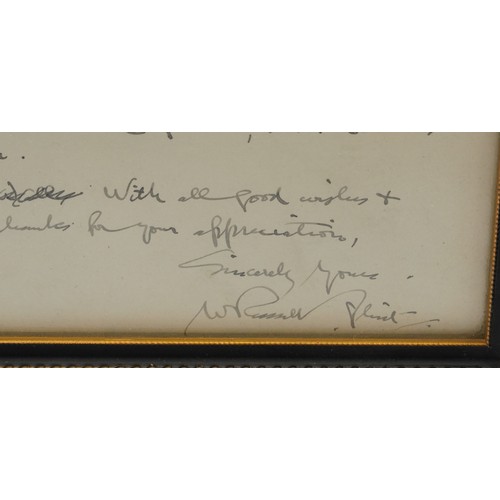 With all good wishes +
thanks for your appreciation,
Sincerely Yours.
W Russell Flint.